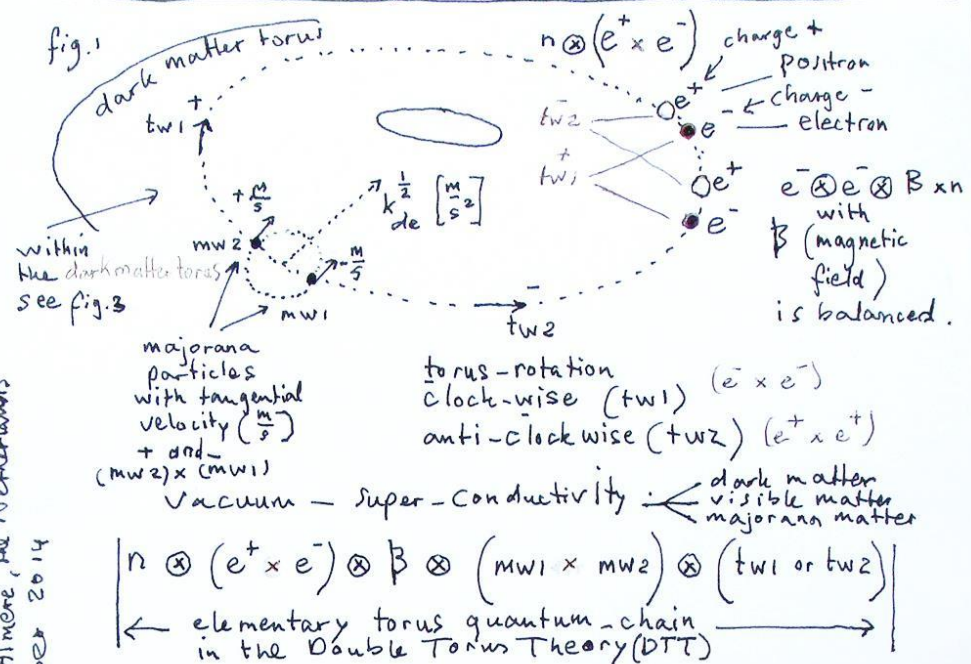 fig.1
dark matter torus
n ⊗ (e⁺ × e⁻)
charge +
positron
charge -
electron
+
tw1
e⁺
e⁻
tw2⁻
tw1⁺
e⁺
e⁻
e⁻ ⊗ e⁻ ⊗ B × n
with
B (magnetic
field)
is balanced.
+ m/s
k de ½ [m/s²]
mw2
- m/s
mw1
within
the dark matter torus
see fig.3
-
tw2
majorana
particles
with tangential
velocity (m/s)
+ and -
(mw2) × (mw1)
torus-rotation
clock-wise (tw1) (e⁻ × e⁻)
anti-clockwise (tw2) (e⁺ × e⁺)
vacuum - super-conductivity :
dark matter
visible matter
majorana matter
| n ⊗ (e⁺ × e⁻) ⊗ B ⊗ (mw1 × mw2) ⊗ (tw1 or tw2) |
elementary torus quantum-chain
in the Double Torus Theory (DTT)
2014